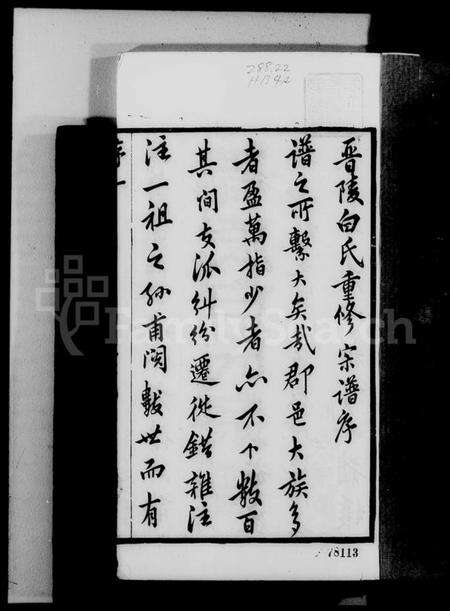 288.22
H1342
晉陵白氏重修宗譜序
譜之所繫大矣哉郡邑大族多
者盈萬指少者亦不个數百
其间支派糾纷遷徙錯雜注
注一祖之孙甫阅數世而有
序一
FamilySearch
78113